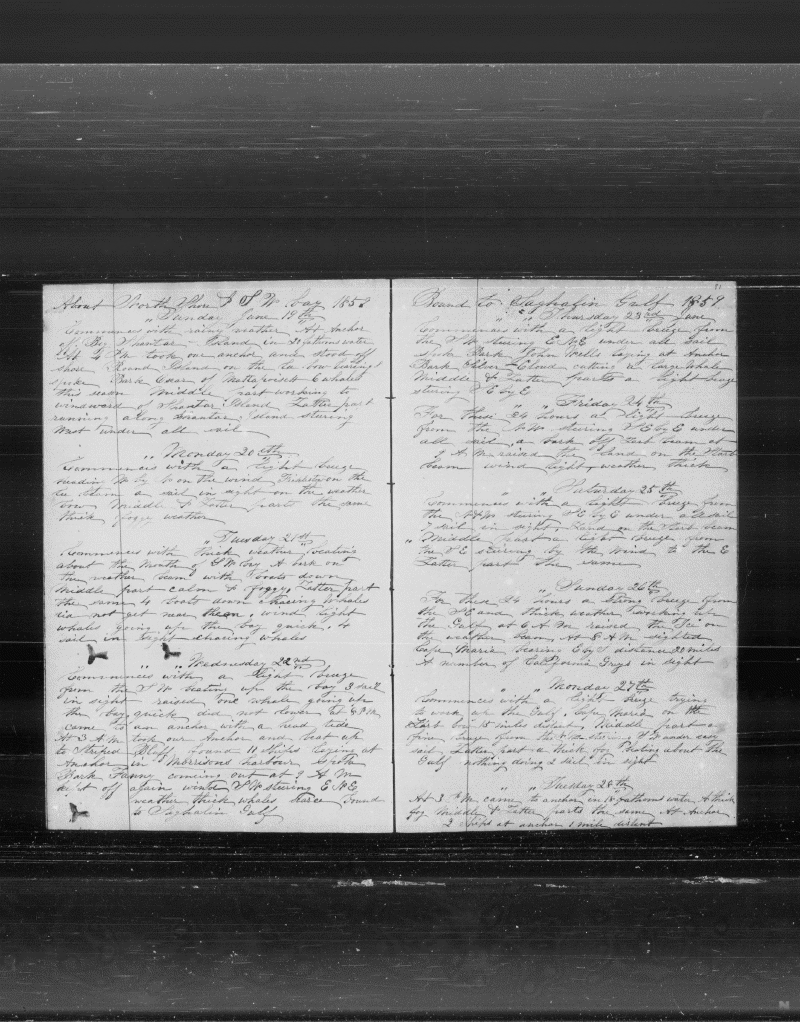 About North Shore & S W bay 1859
" Sunday June 19th
Commences with rainy weather At Anchor
off Big Shantar Island in 20 fathoms water
At 4 P.M took our anchor and stood off
shore Round Island on the Lee bow bearing
spoke Bark Cear of Mattapoisett 6 whales
this season Middle part working to
windward of Shantar Island Latter part
running along Shantar Island steering
West under all sail
" Monday 20th
Commences with a light breeze
heading W by N on the wind on the
Lee beam a sail in sight on the weather
bow Middle & Latter parts the same
thick foggy weather
" Tuesday 21st
Commences with thick weather beating
about the Mouth of S W Bay A bark on
the weather beam with boats down
Middle part calm & foggy Latter part
the same 4 boats down chasing whales
did not get near them wind light
whales going up the bay quick 4
sail in sight chasing whales
" " Wednesday 22nd
Commences with a light breeze
from the S W beating up the bay 3 sail
in sight raised one whale going up
the bay quick did not lower at 8 P.M
came to an anchor with a head tide
At 3 A.M took our Anchor and beat up
to Striped Bluff found 11 ships laying at
Anchor in Morrisons harbour Spoke
Bark Fanny coming out at 9 A M
kept off again wind S W steering E N E
weather thick whales scarce bound
to Saghalin Gulf
Bound to Saghalin Gulf 1859
" " Thursday 23rd June
Commences with a light breeze from
the S W steering E N E under all sail
spoke Bark John Wells laying at Anchor
Bark Silver Cloud cutting a large whale
Middle & Latter parts a light breeze
steering E by E
" Friday 24th
For these 24 hours a light breeze
from the N W steering S E by E under
all sail a bark off Larb beam at
9 A M raised the Land on the Starb
beam wind light weather thick
" Saturday 25th
Commences with a light breeze from
the N N W steering S E by E under all sail
7 sail in sight Land on the Starb beam
" Middle part a light breeze from
the S E steering by the wind to the E
Latter part the same
" " Sunday 26th
For these 24 hours a strong breeze from
the S E and thick weather working up
the Gulf at 6 A M raised the on
the weather beam At 8 A M sighted
Cape Maria bearing E by S distance 20 miles
A number of California Greys in sight
" " Monday 27th
Commences with a light breeze trying
to work up the Gulf Cape Maria on the
Larb bow 15 miles distance Middle part a
fine breeze from the steering S E under easy
sail Latter part a thick fog Beating about the
Gulf nothing doing 2 sail in sight
" " Tuesday 28th
At 3 P M came to anchor in 18 fathoms water A thick
fog Middle & Latter parts the same At Anchor
3 ships at anchor 1 mile distant